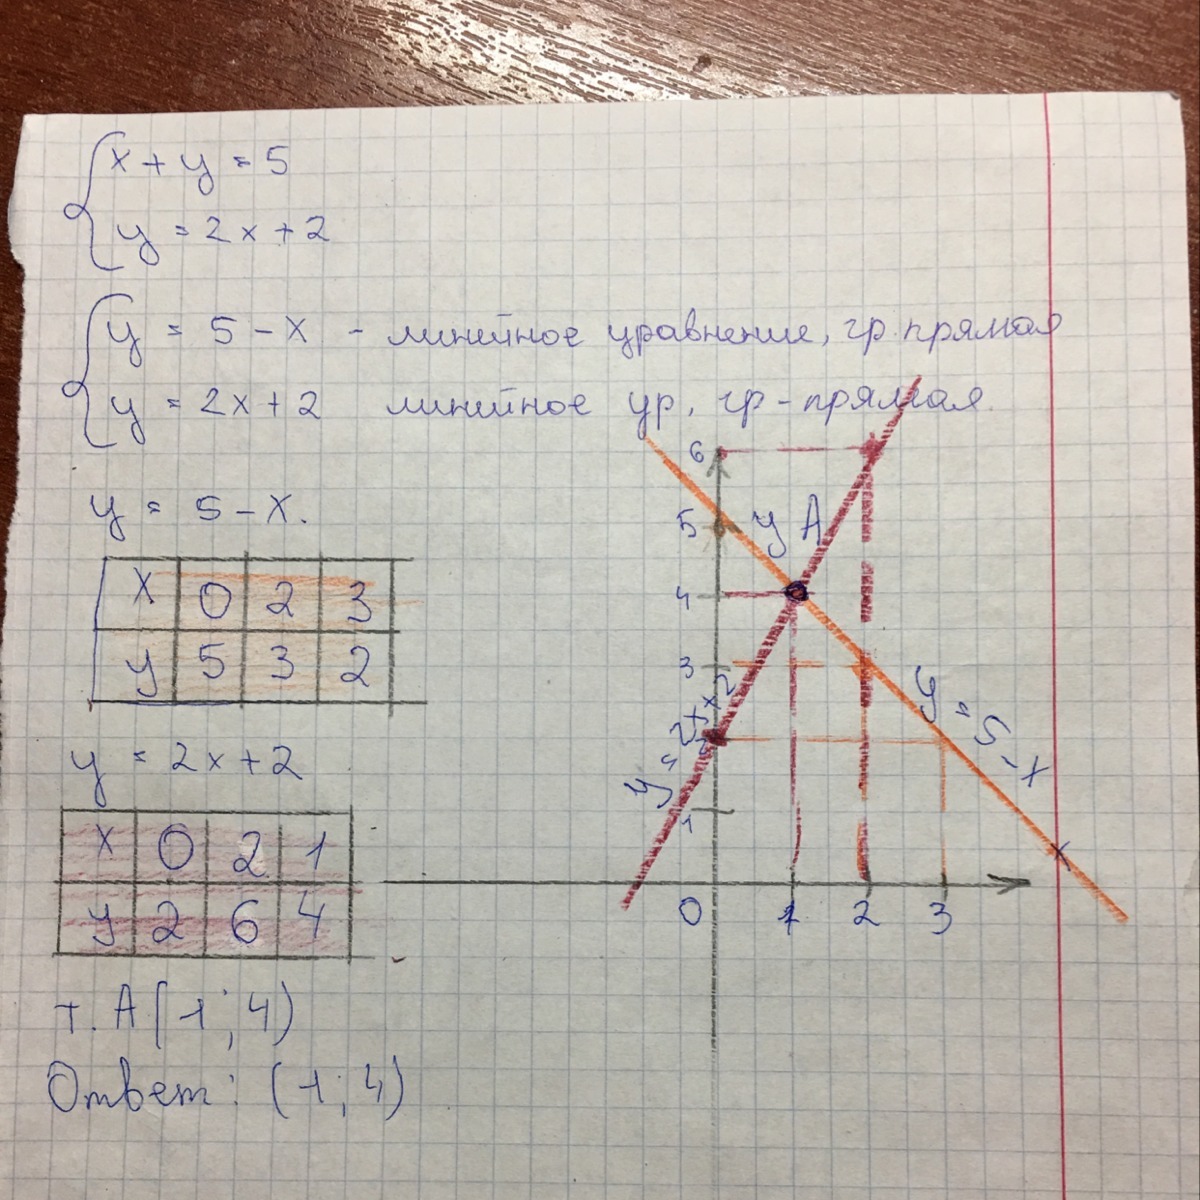 x + y = 5
y = 2x + 2
y = 5 - x - линейное уравнение, гр. прямая
y = 2x + 2 линейное ур, гр - прямая
y = 5 - x.
x 0 2 3
y 5 3 2
y = 2x + 2
x 0 2 1
y 2 6 4
т. A (1; 4)
Ответ: (1; 4)
6
5
y A
4
3
2
1
0 1 2 3
x
y = 2x + 2
y = 5 - x